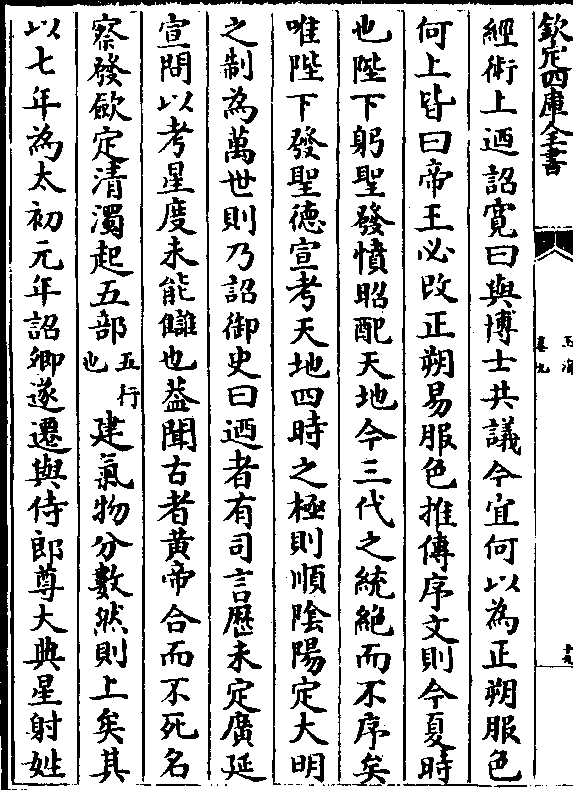 欽定四庫全書
玉海
卷九
十九
經術上迺詔寛曰與博士共議今宜何以為正朔服色
何上皆曰帝王必改正朔易服色推傳序文則今夏時
也陛下躬聖發憤昭配天地今三代之統絶而不序矣
唯陛下發聖德宣考天地四時之極則順陰陽定大明
之制為萬世則乃詔御史曰迺者有司言厯未定廣延
宣問以考星度未能讎也葢聞古者黄帝合而不死名
察發歛定清濁起五部五行也建氣物分數然則上矣其
以七年為太初元年詔卿遂遷與侍郎尊大典星射姓